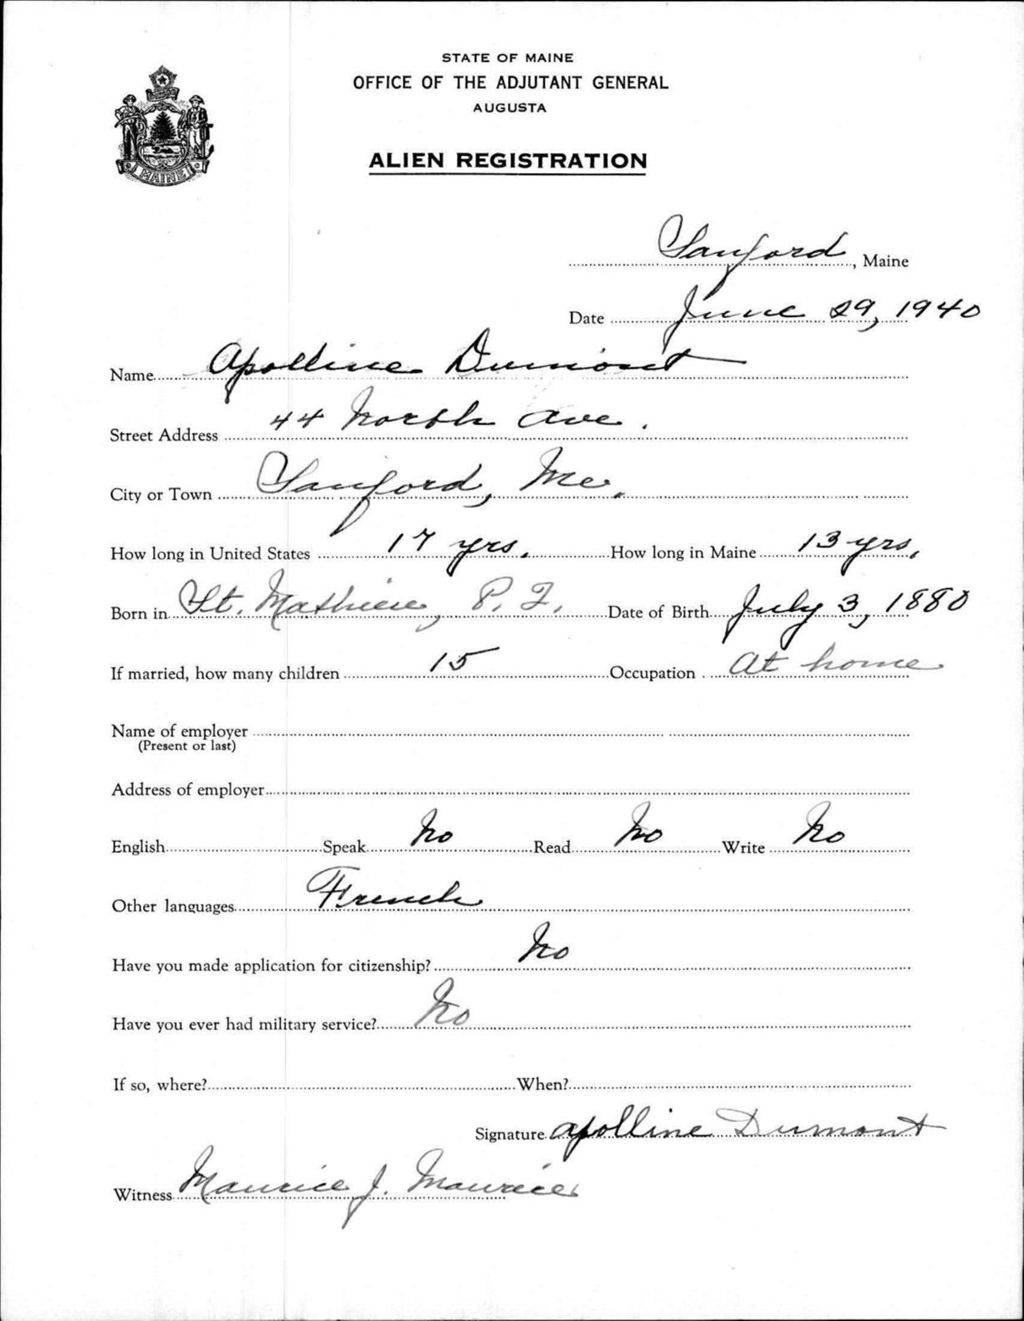 STATE OF MAINE
OFFICE OF THE ADJUTANT GENERAL
AUGUSTA
ALIEN REGISTRATION
MAINE
Sanford, Maine
Date June 29, 1940
Name Apolline Dumont
Street Address 44 North Ave.
City or Town Sanford, Me.
How long in United States 17 yrs. How long in Maine 13 yrs.
Born in St. Mathieu, P. Q. Date of Birth July 3, 1880
If married, how many children 15 Occupation At home
Name of employer
(Present or last)
Address of employer
English Speak No Read No Write No
Other languages French
Have you made application for citizenship? No
Have you ever had military service? No
If so, where? When?
Signature Apolline Dumont
Witness Maurice J. Maurice